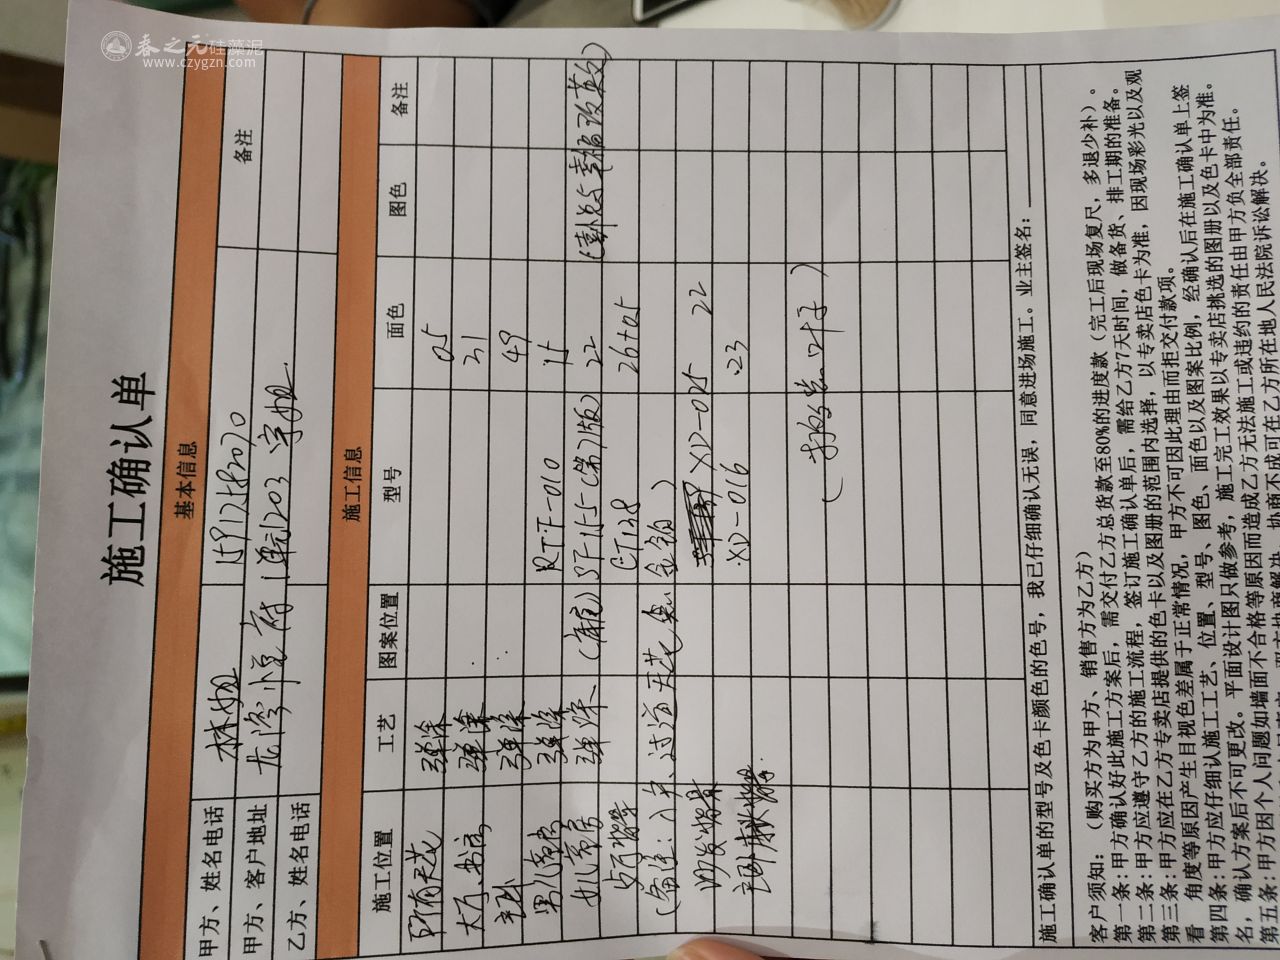 春之元硅藻泥
www.czygzn.com
施工确认单
基本信息
甲方、姓名电话 林姐 15917582070 备注
甲方、客户地址 龙湾 府 1单元1203
乙方、姓名电话
施工信息
施工位置 工艺 图案位置 型号 面色 图色 备注
所有天花 弹涂 05
大厅、书房 弹涂 31
主卧 弹涂 49
男儿童房 弹涂 RTF-010 15
女儿童房 弹涂 ST155(第7版) 22
CT128 26+05
(备注: 过道天花 金铂)
沙发背景 XD-025 22
主卧床背景 XD-016 23
施工确认单的型号及色卡颜色的色号,我已仔细确认无误,同意进场施工。业主签名:
客户须知:(购买方为甲方、销售方为乙方)
第一条:甲方确认好此施工方案后,需交付乙方总货款至80%的进度款(完工后现场复尺,多退少补)。
第二条:甲方应遵守乙方的施工流程,签订施工确认单后,需给乙方7天时间,做备货、排工期的准备。
第三条:甲方应在乙方专卖店提供的色卡以及图册的范围内选择,以专卖店色卡为准,因现场彩光以及观
看角度等原因产生目视色差属于正常情况,甲方不可因此理由而拒交付款项。
第四条:甲方应仔细认施工工艺、位置、型号、图色、面色以及图案比例,经确认后在施工确认单上签
名,确认方案后不可更改。平面设计图只做参考,施工完工效果以专卖店挑选的图册以及色卡中为准。
第五条:甲方因个人问题如墙面不合格等原因而造成乙方无法施工或违约的责任由甲方负全部责任。
协商解决,协商不成可在乙方所在地人民法院诉讼解决。